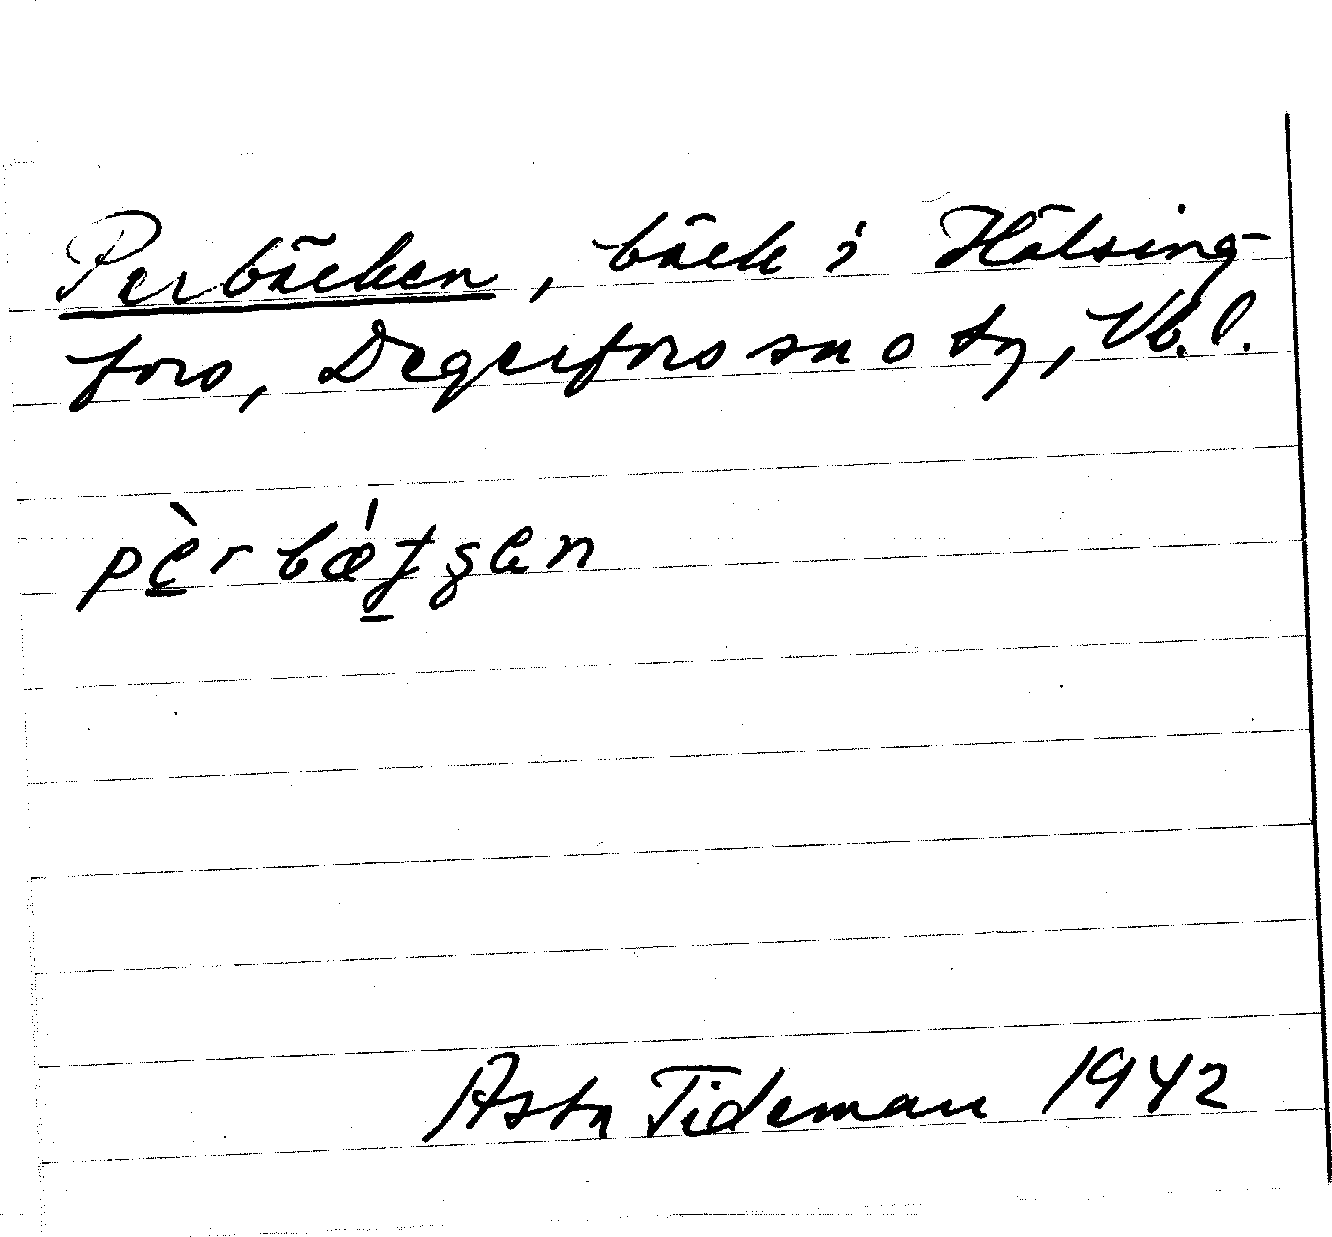 Perbäcken, bäck i Hälsing-
fors, Degerfors sn o tg, Vb. l.
pèrbǽʈʂen
Asta Tideman 1942